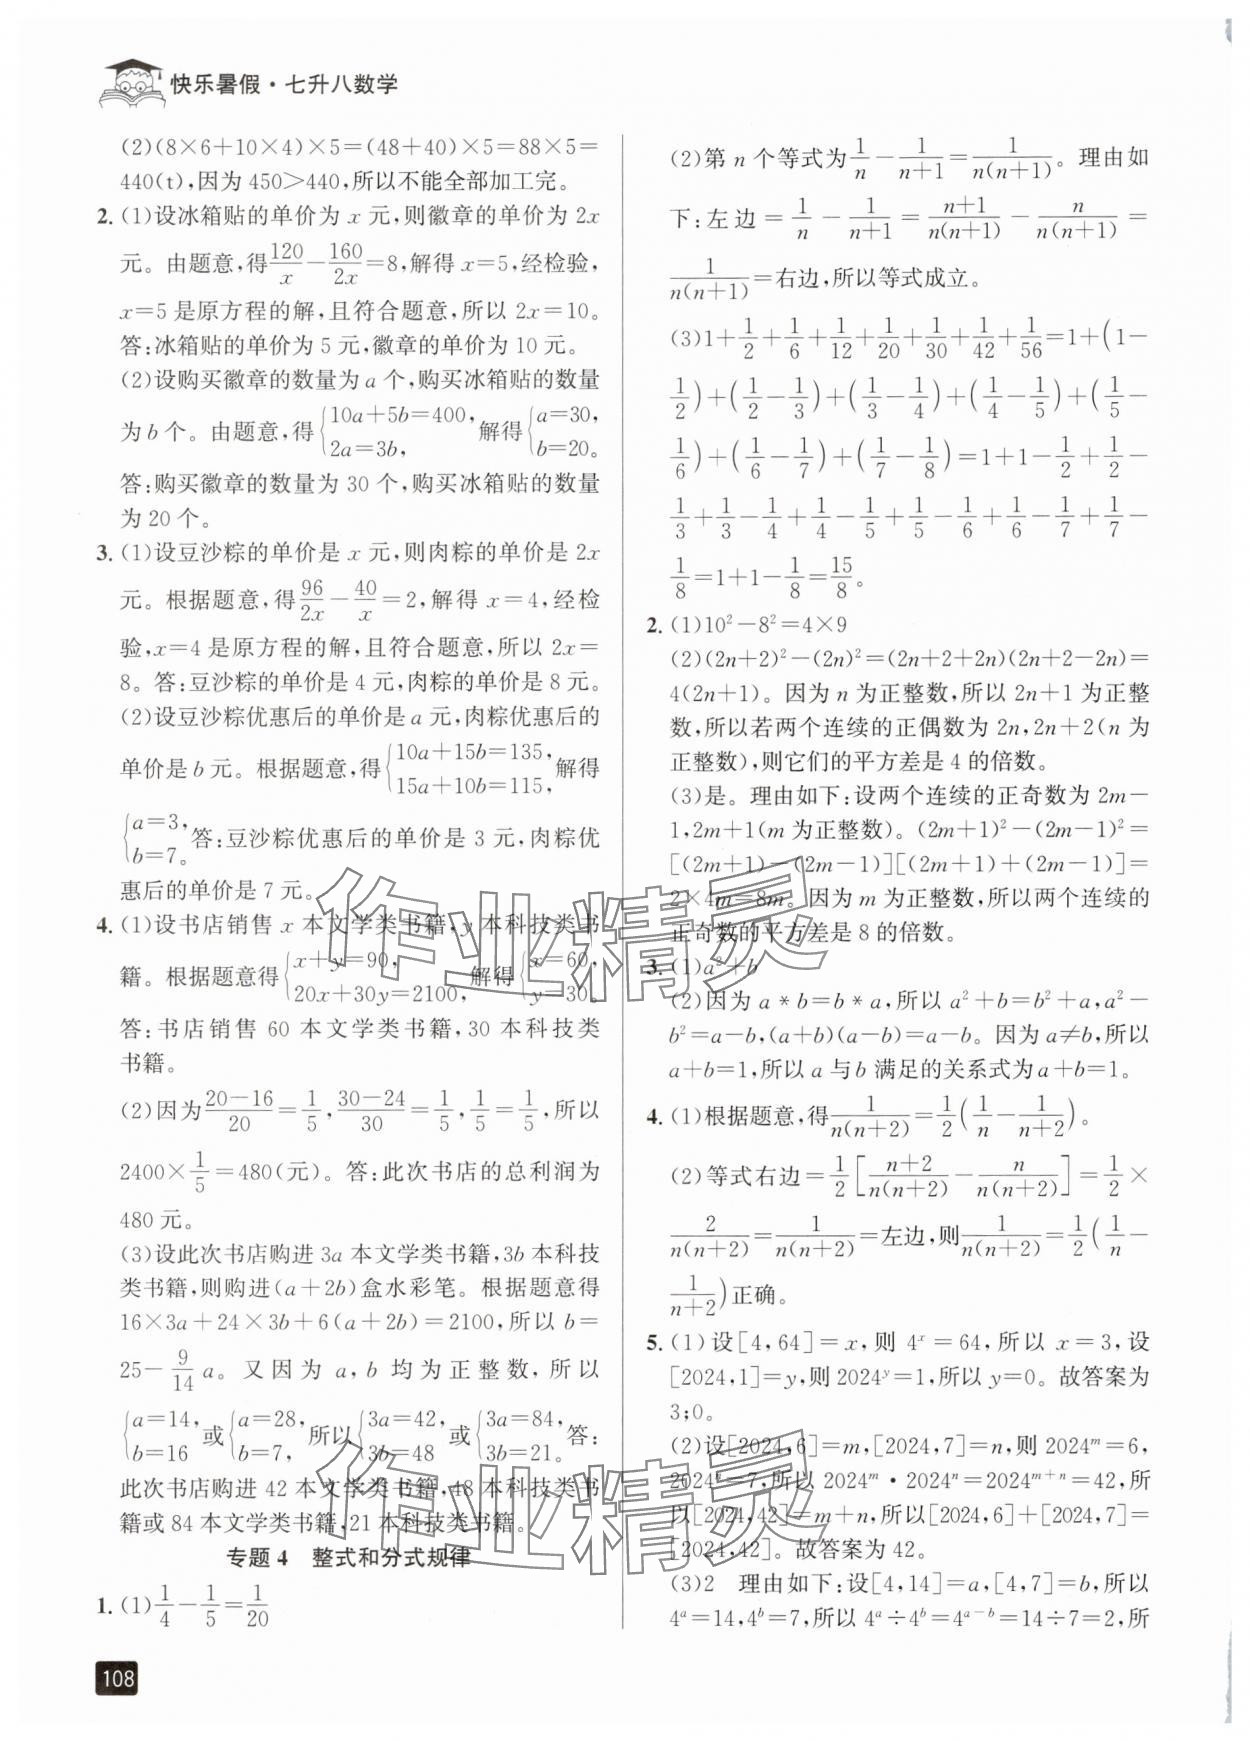 快乐暑假·七升八数学
(2)(8×6+10×4)×5=(48+40)×5=88×5=
440(t),因为450>440,所以不能全部加工完。
2. (1)设冰箱贴的单价为 x 元,则徽章的单价为 2x
元。由题意,得120/x-160/2x=8,解得 x=5,经检验,
x=5 是原方程的解,且符合题意,所以 2x=10。
答:冰箱贴的单价为 5 元,徽章的单价为 10 元。
(2)设购买徽章的数量为 a 个,购买冰箱贴的数量
为 b 个。由题意,得{10a+5b=400, 2a=3b, 解得{a=30, b=20。
答:购买徽章的数量为 30 个,购买冰箱贴的数量
为 20 个。
3. (1)设豆沙粽的单价是 x 元,则肉粽的单价是 2x
元。根据题意,得96/2x-40/x=2,解得 x=4,经检
验,x=4 是原方程的解,且符合题意,所以 2x=
8。答:豆沙粽的单价是 4 元,肉粽的单价是 8 元。
(2)设豆沙粽优惠后的单价是 a 元,肉粽优惠后的
单价是 b 元。根据题意,得{10a+15b=135, 15a+10b=115, 解得
{a=3, b=7。答:豆沙粽优惠后的单价是 3 元,肉粽优
惠后的单价是 7 元。
4. (1)设书店销售 x 本文学类书籍,y 本科技类书
籍。根据题意得{x+y=90, 20x+30y=2100, 解得{x=60, y=30。
答:书店销售 60 本文学类书籍,30 本科技类
书籍。
(2)因为(20-16)/20=1/5,(30-24)/30=1/5,1/5=1/5,所以
2400×1/5=480(元)。答:此次书店的总利润为
480 元。
(3)设此次书店购进 3a 本文学类书籍,3b 本科技
类书籍,则购进(a+2b)盒水彩笔。根据题意得
16×3a+24×3b+6(a+2b)=2100,所以 b=
25-9/14 a。又因为 a,b 均为正整数,所以
{a=14, b=16 或{a=28, b=7, 所以{3a=42, 3b=48 或{3a=84, 3b=21。答:
此次书店购进 42 本文学类书籍,48 本科技类书
籍或 84 本文学类书籍,21 本科技类书籍。
专题 4 整式和分式规律
1. (1)1/4-1/5=1/20
(2)第 n 个等式为1/n-1/(n+1)=1/(n(n+1))。理由如
下:左边=1/n-1/(n+1)=(n+1)/(n(n+1))-n/(n(n+1))=
1/(n(n+1))=右边,所以等式成立。
(3)1+1/2+1/6+1/12+1/20+1/30+1/42+1/56=1+(1-
1/2)+(1/2-1/3)+(1/3-1/4)+(1/4-1/5)+(1/5-
1/6)+(1/6-1/7)+(1/7-1/8)=1+1-1/2+1/2-
1/3+1/3-1/4+1/4-1/5+1/5-1/6+1/6-1/7+1/7-
1/8=1+1-1/8=15/8。
2. (1)10²-8²=4×9
(2)(2n+2)²-(2n)²=(2n+2+2n)(2n+2-2n)=
4(2n+1)。因为 n 为正整数,所以 2n+1 为正整
数,所以若两个连续的正偶数为 2n,2n+2(n 为
正整数),则它们的平方差是 4 的倍数。
(3)是。理由如下:设两个连续的正奇数为 2m-
1,2m+1(m 为正整数)。(2m+1)²-(2m-1)²=
[(2m+1)-(2m-1)][(2m+1)+(2m-1)]=
2×4m=8m。因为 m 为正整数,所以两个连续的
正奇数的平方差是 8 的倍数。
3. (1)a²+b
(2)因为 a*b=b*a,所以 a²+b=b²+a,a²-
b²=a-b,(a+b)(a-b)=a-b。因为 a≠b,所以
a+b=1,所以 a 与 b 满足的关系式为 a+b=1。
4. (1)根据题意,得1/(n(n+2))=1/2(1/n-1/(n+2))。
(2)等式右边=1/2[(n+2)/(n(n+2))-n/(n(n+2))]=1/2×
2/(n(n+2))=1/(n(n+2))=左边,则1/(n(n+2))=1/2(1/n-
1/(n+2))正确。
5. (1)设[4,64]=x,则 4ˣ=64,所以 x=3,设
[2024,1]=y,则 2024ʸ=1,所以 y=0。故答案为
3;0。
(2)设[2024,6]=m,[2024,7]=n,则 2024ᵐ=6,
2024ⁿ=7,所以 2024ᵐ·2024ⁿ=2024ᵐ⁺ⁿ=42,所
以[2024,42]=m+n,所以[2024,6]+[2024,7]=
[2024,42]。故答案为 42。
(3)2 理由如下:设[4,14]=a,[4,7]=b,所以
4ᵃ=14,4ᵇ=7,所以 4ᵃ÷4ᵇ=4ᵃ⁻ᵇ=14÷7=2,所
108
作业精灵
作业精灵